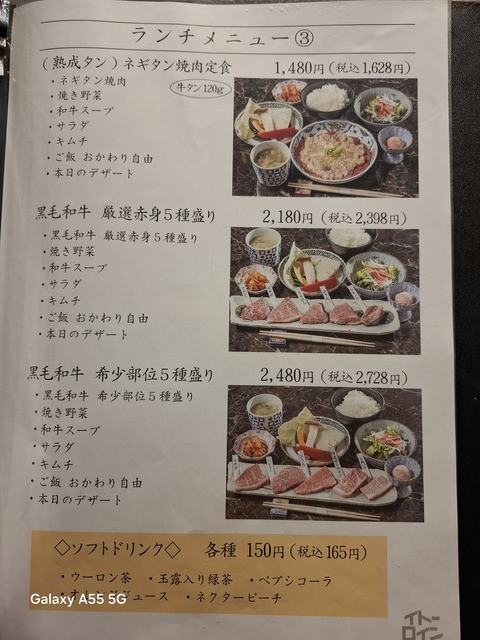 ランチメニュー③
（熟成タン）ネギタン焼肉定食 1,480円（税込1,628円）
・ネギタン焼肉 牛タン120g
・焼き野菜
・和牛スープ
・サラダ
・キムチ
・ご飯 おかわり自由
・本日のデザート
黒毛和牛 厳選赤身5種盛り 2,180円（税込2,398円）
・黒毛和牛 厳選赤身5種盛り
・焼き野菜
・和牛スープ
・サラダ
・キムチ
・ご飯 おかわり自由
・本日のデザート
黒毛和牛 希少部位5種盛り 2,480円（税込2,728円）
・黒毛和牛 希少部位5種盛り
・焼き野菜
・和牛スープ
・サラダ
・キムチ
・ご飯 おかわり自由
・本日のデザート
◇ソフトドリンク◇ 各種 150円（税込165円）
・ウーロン茶 ・玉露入り緑茶 ・ペプシコーラ
ジュース ・ネクターピーチ
Galaxy A55 5G